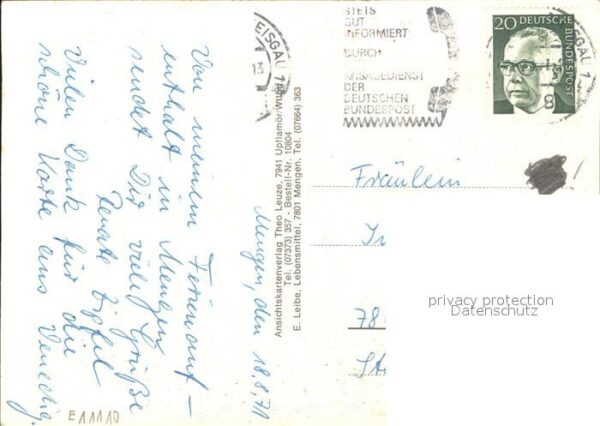 Von meinem Ferienauf-
enthalt in Mengen
sendet Dir viele Grüße
Renate
Vielen Dank für die
schöne Karte aus Venedig.
E11110
Mengen, den 18.8.71
Ansichtskartenverlag Theo Leuze, 7941 Upflamör Württ.
Tel. (07373) 357 - Bestell-Nr. 10804
E. Leibe, Lebensmittel, 7801 Mengen, Tel. (07664) 363
EISGAU 1
13
STETS
GUT
INFORMIERT
DURCH
ANSAGEDIENST
DER
DEUTSCHEN
BUNDESPOST
EISGAU 1
20 DEUTSCHE
BUNDESPOST
Fräulein
78
privacy protection
Datenschutz